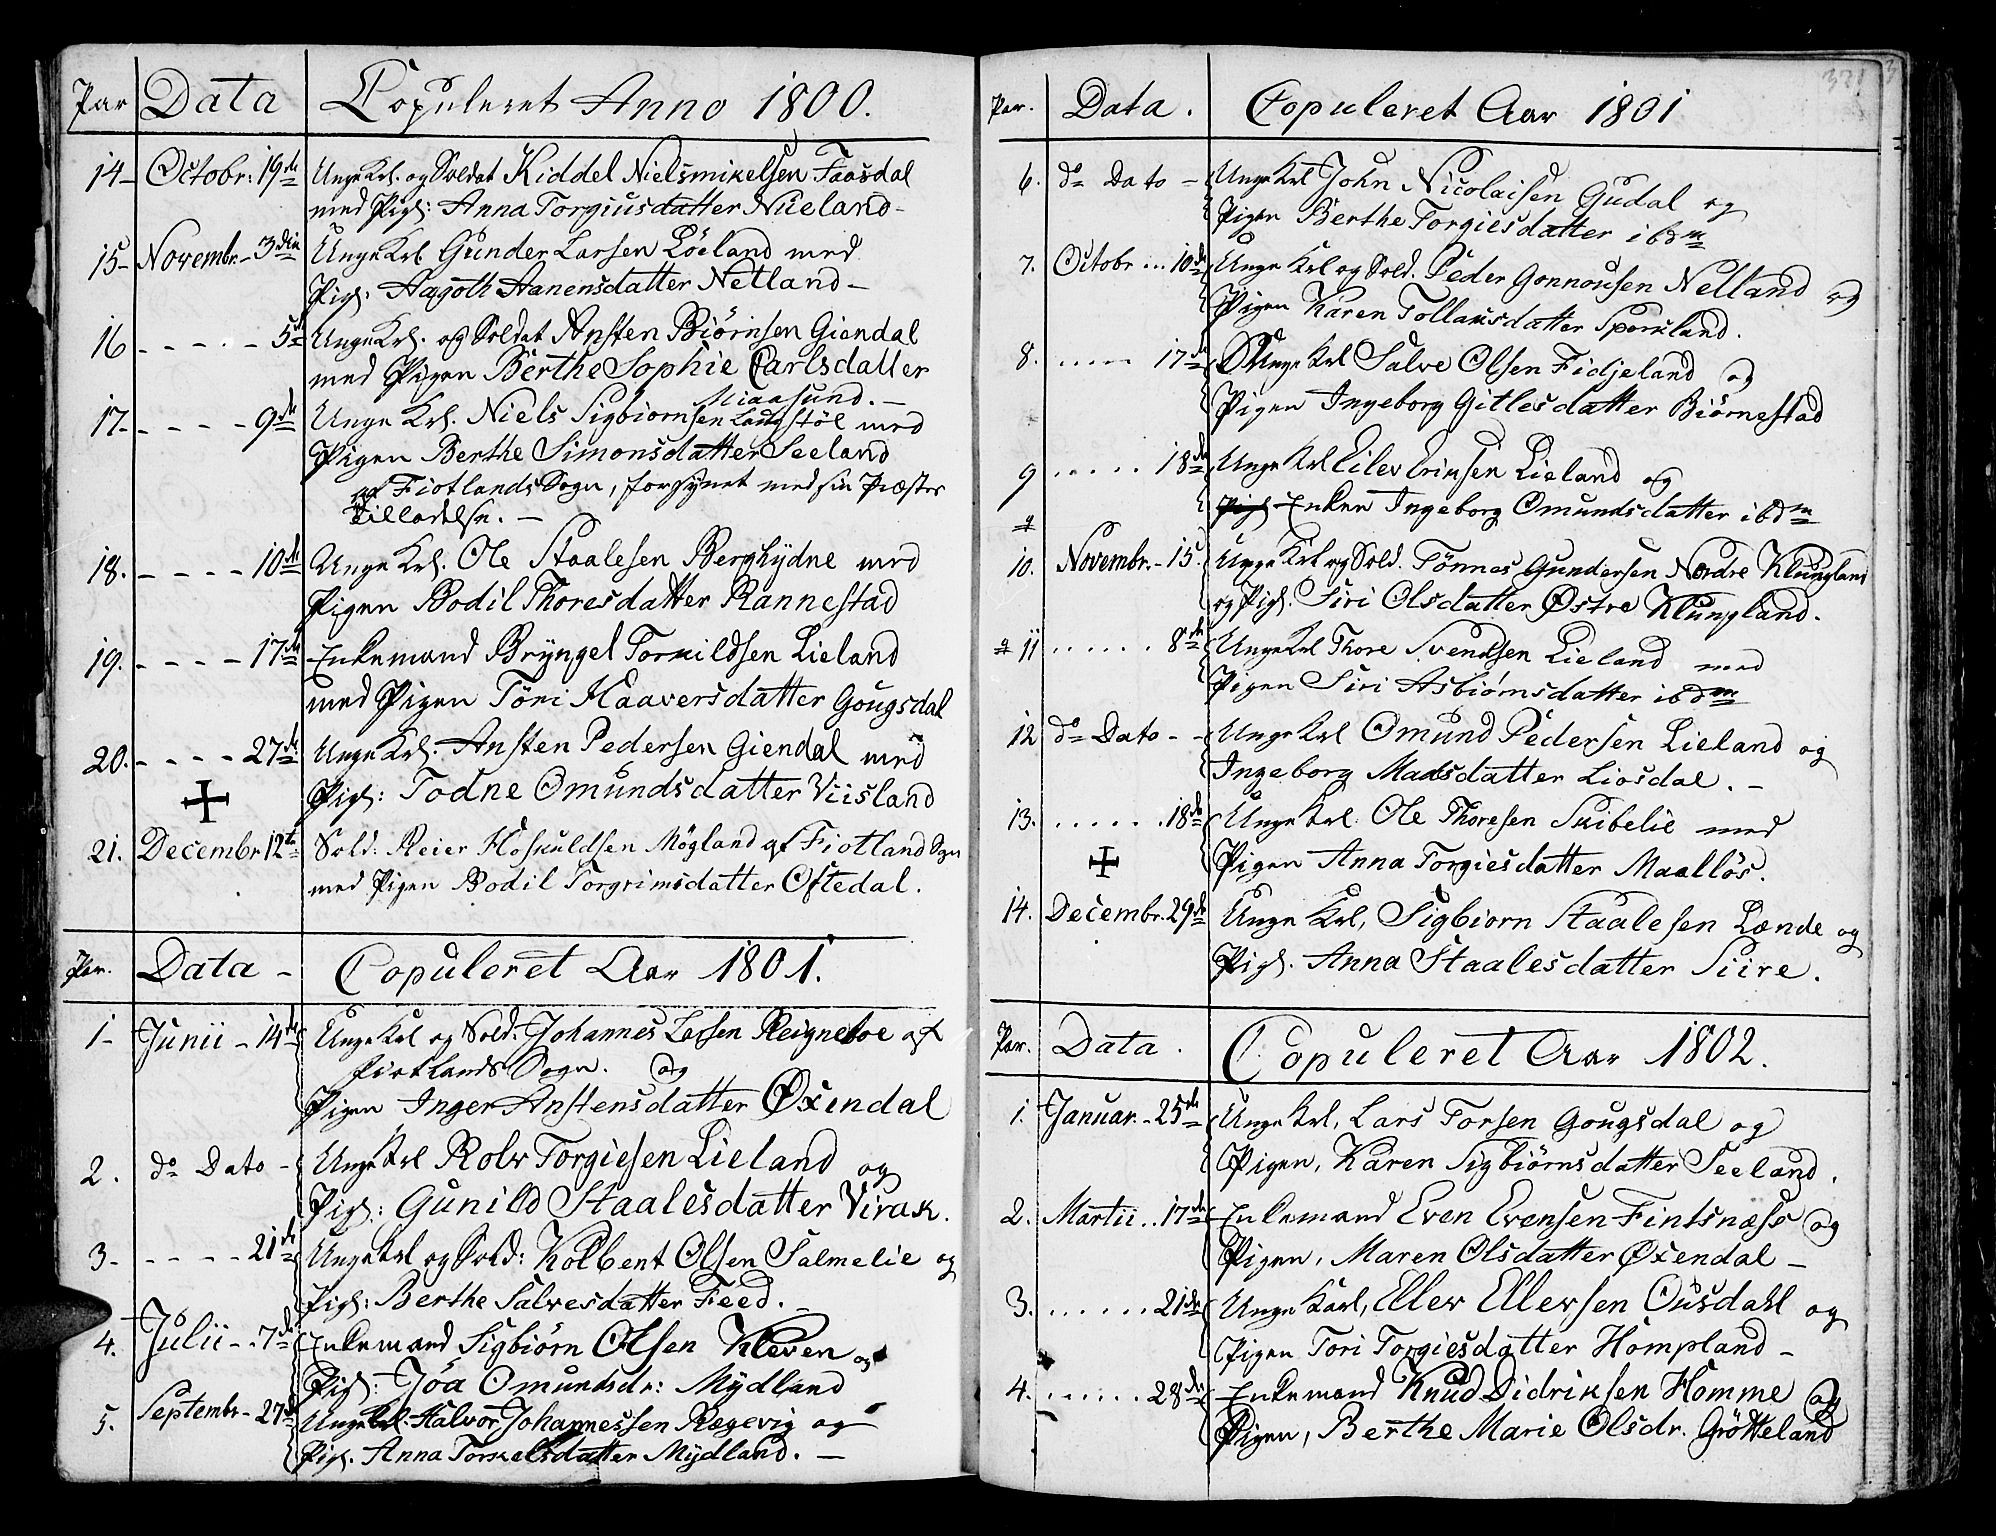 Par Data Copuleret Anno 1800.
14- Octobr: 19de Unge Krl. og Soldat Kiddel Nielsmikelsen Faasdal
med Pig: Anna Torgiusdatter Nüeland-
15- Novembr.- 3die Unge Krl Gunder Larsen Löeland med
Pig: Aagoth Aanensdatter Netland-
16 - - - - - 5te Unge Krl. og Soldat Ansten Biörnsen Giendal
med Pigen Berthe Sophie Carlsdatter
Miaasund.-
17- - - - - 9de Unge Krl. Niels Sigbiornsen Landstöl med
Pigen Berthe Simonsdatter Seeland
af Fiotlands Sogn, forsynet med sin Præstes
Tilladelse. -
18. - - - - 10de Unge Krl. Ole Staalesen Berghydne med
Pigen Bodil Thoresdatter Rannestad
19. - - - - 17de Enkemand Bryngel Torkildsen Lieland
med Pigen Töri Haaversdatter Gougsdal
20. - - - - 27de Unge Krl. Ansten Pedersen Giendal med
Pig: Todne Omundsdatter Viisland
21. Decembr 12te Sold: Reier Hoskuldsen Mögland af Fiotland Sogn
med Pigen Bodil Torgrimsdatter Oftedal.
Par. Data - Copuleret Aar 1801.
1- Junii - 14de Unge Krl og Sold: Johannes Larsen Reigneboe af
Fiotlands Sogn. og
Pigen Inger Anstensdatter Øxendal
2. do Dato - Unge Krl Rolv Torgiesen Lieland og
Pig: Gunild Staalesdatter Virak.
3- - - - - 21de Unge Krl og Sold: Kolbent Olsen Salmelie og
Pig: Berthe Salvesdatter Feed. -
4. Julii - 7de Enkemand Sigbiørn Olsen Kleven og
Pig: Jöa Omundsdr: Mydland
5. Septembr - 27de Unge Krl. Halvor Johannessen Rægevig og
Pig. Anna Torkelsdatter Mydland. -
321
Par. Data. Copuleret Aar 1801
6. do Dato - Unge Krl John Nicolaisen Gudal og
Pigen Berthe Torgiesdatter ibdm
7. Octobr ... 10de Unge Krl og Sold. Peder Gonnousen Netland og
Pigen Karen Tollaksdatter Sporkland.
8. ..... 17de Unge Krl Salve Olsen Fidjeland og
Pigen Ingeborg Gitlesdatter Biörnestad
9 ..... 18de Unge Krl Eilev Eriksen Lieland og
Enken Ingeborg Omundsdatter ibdm
10. Novembr.- 15. Unge Krl og Sold. Tönnes Gundersen Nordre Klungland
og Pig. Siri Olsdatter Østre Klungland.
11 ...... 8de Unge Krl Thore Svendsen Lieland med
Pigen Siri Asbiörnsdatter ibdm
12 do Dato - - Unge Krl Omund Pedersen Lieland og
Ingeborg Madsdatter Liosdal. -
13. ...... 18de Unge Krl Ole Thoresen Skibelie med
Pigen Anna Torgiesdatter Maallös.
14. Decembr. 29de Unge Krl, Sigbiorn Staalesen Lænde og
Pig. Anna Staalesdatter Siire.
Par. Data. Copuleret Aar 1802.
1. Januar. - 25de Unge Krl, Lars Torsen Gougsdal og
Pigen, Karen Sigbiörnsdatter Seeland.
2. Martii .. 17de Enkemand Even Evensen Fintsnæss og
Pigen, Maren Olsdatter Øxendal -
3. ...... 21de Unge Karl, Ellev Ellevsen Ousdahl og
Pigen Tori Torgiesdatter Hompland -
4. ...... 28de Enkemand Knud Didriksen Homme og
Pigen, Berthe Marie Olsdr. Grötteland